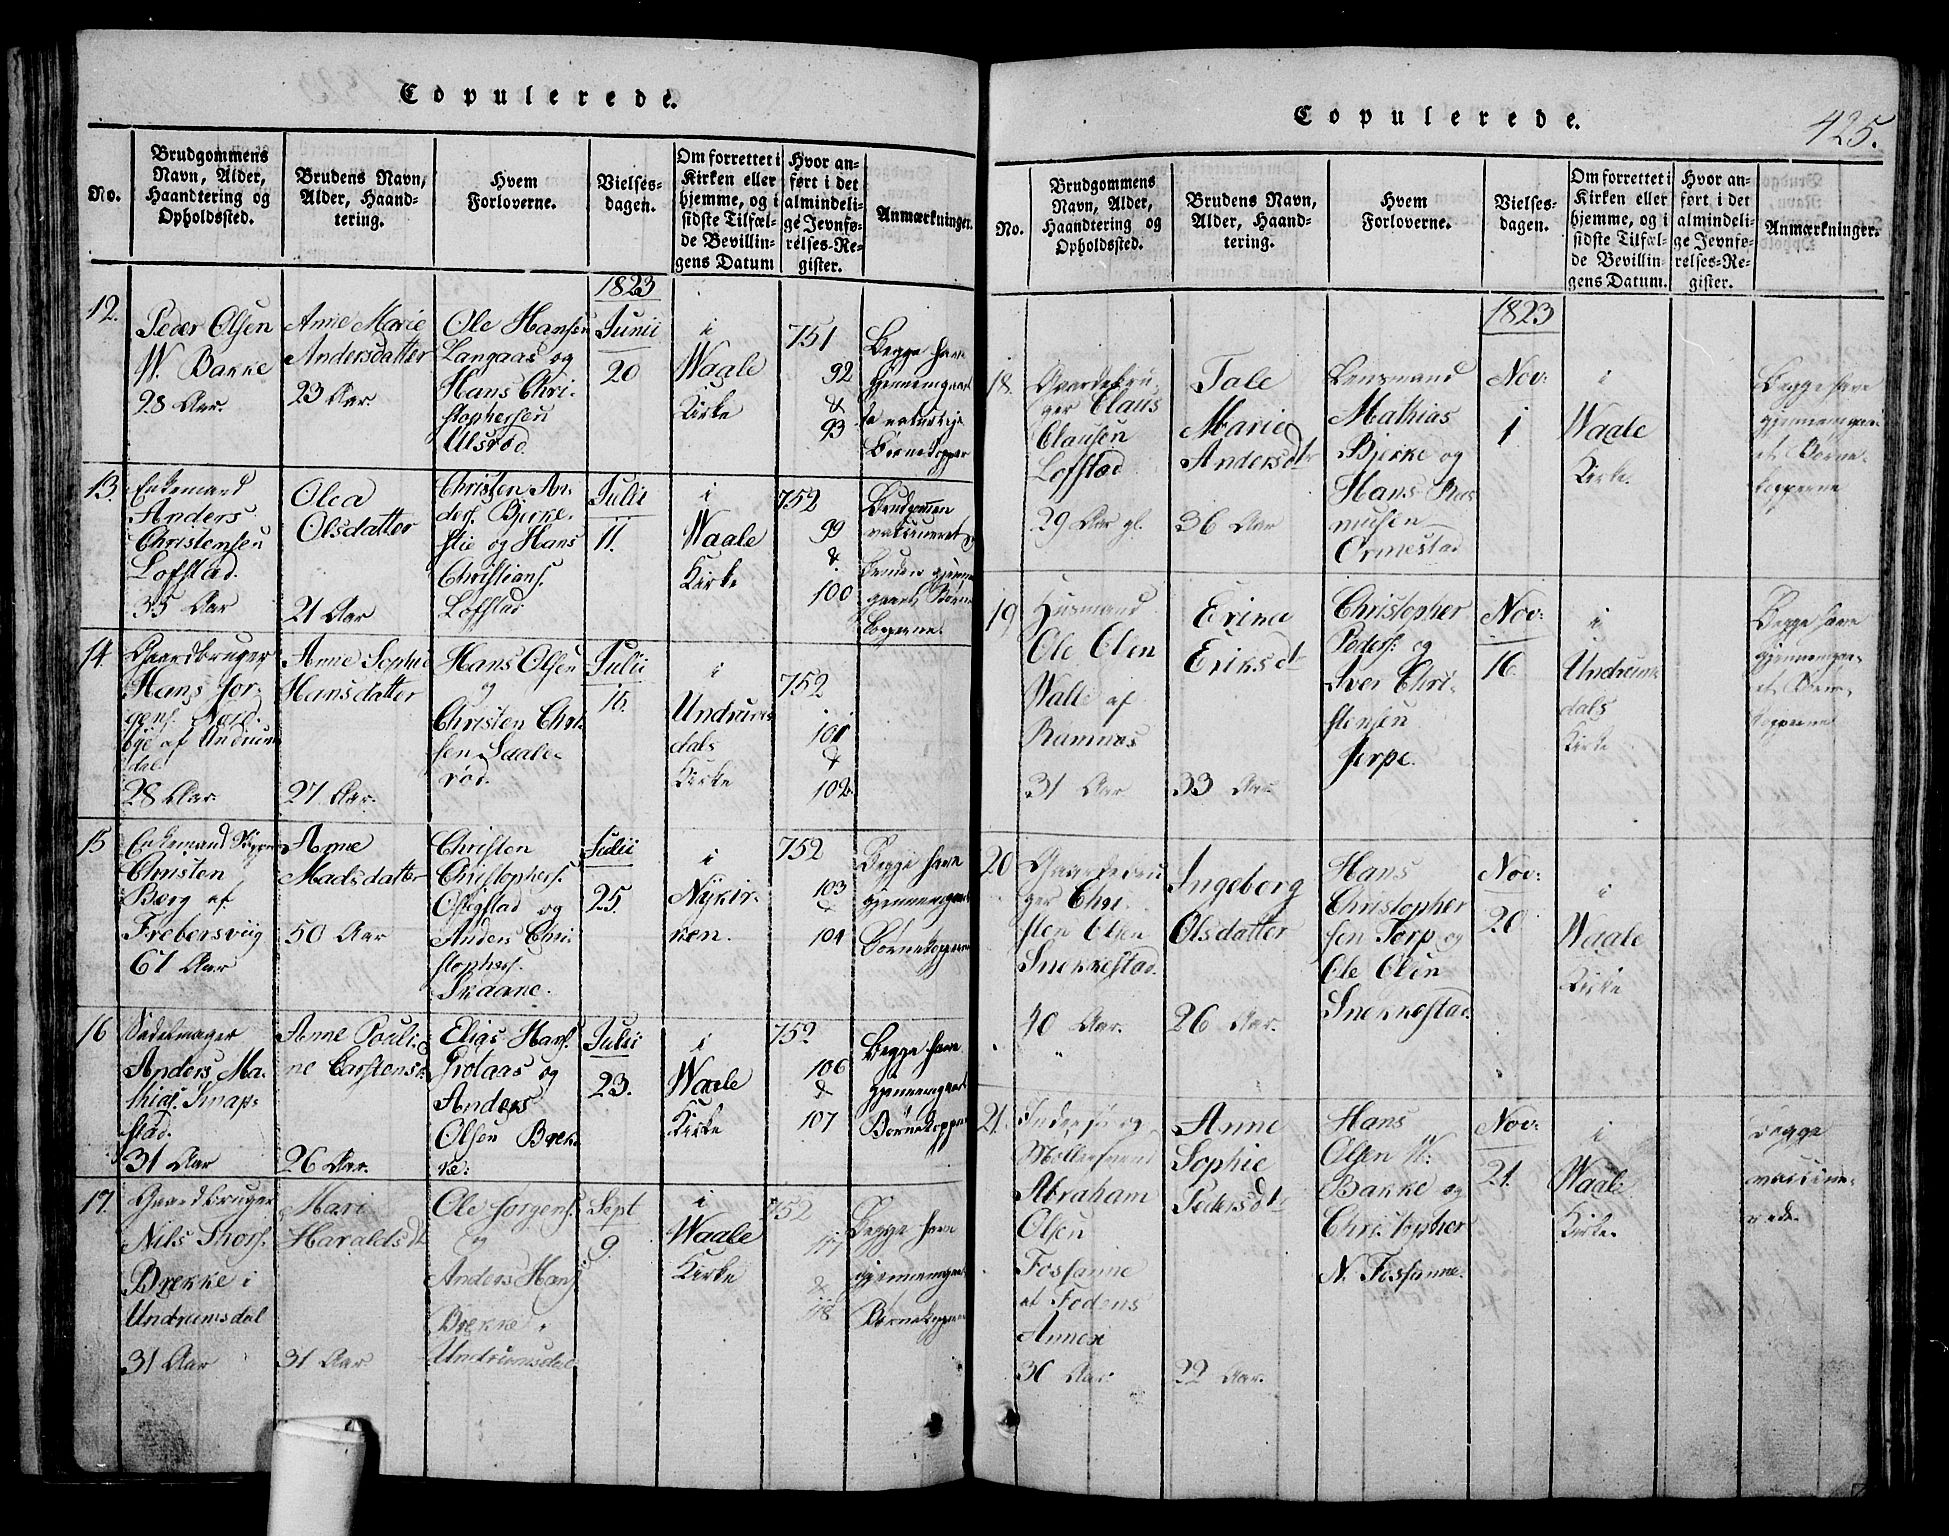 Copulerede.
No.
Brudgommens
Navn, Alder,
Haandtering og
Opholdssted.
Brudens Navn,
Alder, Haand-
tering.
Hvem
Forloverne.
Vielses-
dagen.
Om forrettet i
Kirken eller
hjemme, og i
sidste Tilfæl-
de Bevillin-
gens Datum
Hvor an-
ført i det
almindeli-
ge Jevnfø-
relses-Re-
gister.
Anmærkninger.
1823
12.
Peder Olsen
W. Bakke
28 Aar.
Anne Marie
Andersdatter
23 Aar.
Ole Hansen
Langaas og
Hans Chri-
stophersen
Ulsrød.
Junii
20
i
Waale
Kirke
751
92
&
93
Begge have
gjennemgaae-
de naturlige
Børnekopper
13.
Enkemand
Anders
Christensen
Lofstad.
35 Aar
Olea
Olsdatter
21 Aar
Christen An-
ders. Bjerke-
flie og Hans
Christians.
Lofstad
Julii
11.
i
Waale
Kirke
752
99
&
100
Brudgommen
vaksineret,
Bruden gjennem-
gaaet Børne-
kopperne.
14.
Gaardbruger
Hans Jør-
gens. Nord-
bye af Undrum-
dal
28 Aar.
Anne Sophie
Hansdatter
27 Aar.
Hans Olsen
og
Christen Chri-
sen Saale-
rød.
Julii
15.
i
Undrums-
dals
Kirke
752
101
&
102.
15
Enkemand Skipper
Christen
Bærg af
Frebersviig
67 Aar
Anne
Madsdatter
50 Aar
Christen
Christophers.
Østigstad og
Anders Chri-
stophers.
Skaane.
Julii
25.
i
Nykir-
ken.
752
103
&
104
Begge have
gjennemgaaet
Børnekopperne
16
Sadelmager
Anders Ma-
thias. Knap-
stad.
31 Aar
Anne Pouli-
ne Carstensd.
26 Aar.
Elias Hans.
Grotaas og
Anders
Olsen Bræk-
ke.
Julii
23.
i
Waale
Kirke
752
106
&
107
Begge have
gjennemgaaet
Børnekopper
17.
Gaardbruger
Nils Thors.
Brekke i
Undrumsdal
31 Aar
Mari
Haraldsdt
31 Aar
Ole Jørgens.
og
Anders Hans.
Brekke i
Undrumsdal
Sept
9.
i
Waale
Kirke
752
117
&
118
Begge have
gjennemgaaet
Børnekopperne
Copulerede.
425.
No.
Brudgommens
Navn, Alder,
Haandtering og
Opholdssted.
Brudens Navn,
Alder, Haand-
tering.
Hvem
Forloverne.
Vielses-
dagen.
Om forrettet i
Kirken eller
hjemme, og i
sidste Tilfæl-
de Bevillin-
gens Datum.
Hvor an-
ført i det
almindeli-
ge Jevnfø-
relses-Re-
gister.
Anmærkninger.
1823
18.
Gaardbru-
ger Claus
Clausen
Lofstad
29 Aar gl.
Tale
Marie
Andersdt
36 Aar
Lensmand
Mathias
Bjerke og
Hans Ras-
musen
Ormestad
Nov:
1
i
Waale
Kirke.
Begge have
gjennemgaa-
et Børne-
kopperne
19
Husmand
Ole Olsen
Walle af
Ramnæs
31 Aar
Erina
Eriksdt
33 Aar
Christopher
Peders. og
Iver Chri-
stensen
Jerpe.
Nov:
16.
i
Undrums-
dals
Kirke
Begge have
gjennemgaa-
et Børne-
kopperne
20
Gaardbru-
ger Chri-
sten Olsen
Snekkestad.
40 Aar.
Ingeborg
Olsdatter
26 Aar.
Hans
Christopher-
sen Torp og
Ole Olsen
Snekkestad.
Nov:
20
i
Waale
Kirke
21.
Inderst og
Møllersvend
Abraham
Olsen
Fossanne
af Fodens
Annex
30 Aar.
Anne
Sophie
Pedersdt
22 Aar.
Hans
Olsen W:
Bakke og
Christopher
N. Fossanne.
Nov:
21.
i
Waale
Kirke.
Begge
vaccine-
rede.